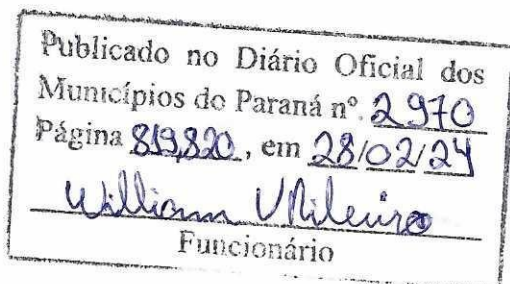 Publicado no Diário Oficial dos
Municípios do Paraná nº. 2970
Página 819,820, em 28/02/24
William
Funcionário